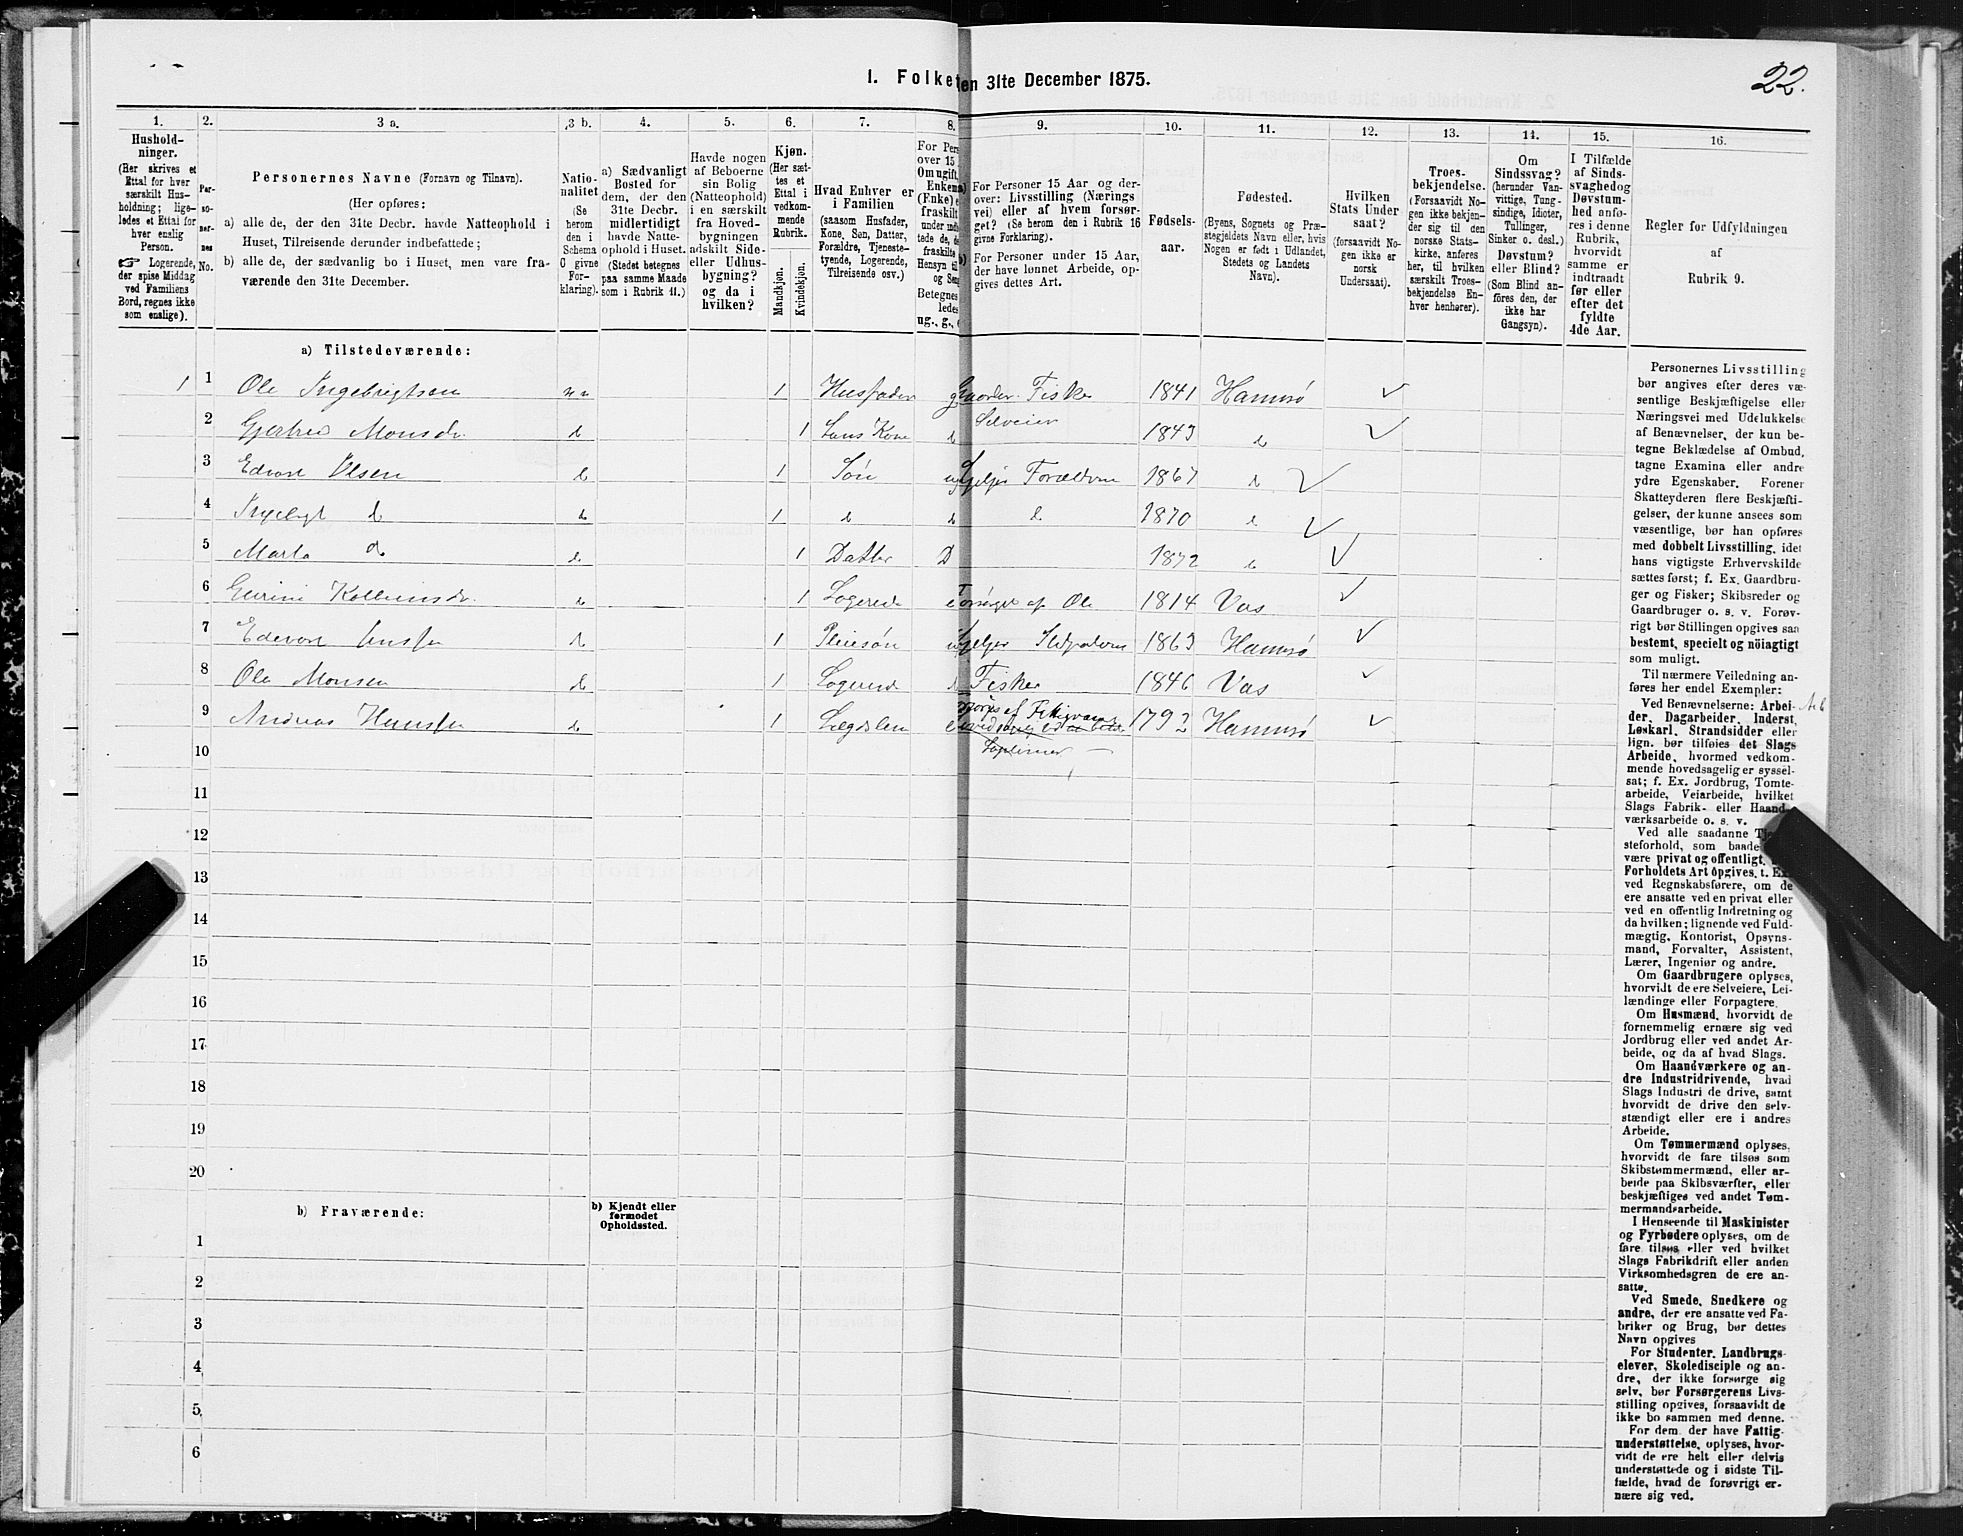 22.
1. Folketen 31te December 1875.
1. 2. 3 a. 3 b. 4. 5. 6. 7. 8. 9. 10. 11. 12. 13. 14. 15. 16.
Hushold-
ninger.
(Her skrives et
Ettal for hver
særskilt Hus-
holdning; lige-
ledes et Ettal for
hver enslig
Person.
☞ Logerende,
der spise Middag
ved Familiens
Bord, regnes ikke
som enslige).
Per-
so-
ner-
nes
No.
Personernes Navne (Fornavn og Tilnavn).
(Her opføres:
a) alle de, der den 31te Decbr. havde Natteophold i
Huset, Tilreisende derunder indbefattede;
b) alle de, der sædvanlig bo i Huset, men vare fra-
værende den 31te December.
Natio-
nalitet
(Se
herom
den i
Schema
0 givne
For-
klaring).
a) Sædvanligt
Bosted for
dem, der den
31te Decbr.
midlertidigt
havde Natte-
ophold i Huset.
(Stedet betegnes
paa samme Maade
som i Rubrik 11.)
Havde nogen
af Beboerne
sin Bolig
(Natteophold)
i en særskilt
fra Hoved-
bygningen
adskilt Side-
eller Udhus-
bygning?
og da i
hvilken?
Kjøn.
(Her sæt-
tes et
Ettal i
vedkom-
mende
Rubrik.
Mandkjøn.
Kvindekjøn.
Hvad Enhver er
i Familien
(saasom Husfader,
Kone, Søn, Datter,
Forældre, Tjeneste-
tyende, Logerende,
Tilreisende osv.)
For Pers
over 15
Om ugift,
Enkem
(Enke) e
fraskilt
under ind
tede de, de
fraskilte
Hensyn til
og Sen
Betegnes
ledes
ug., g., e
a)
For Personer 15 Aar og der-
over: Livsstilling (Nærings
vei) eller af hvem forsør-
get? (Se herom den i Rubrik 16
givne Forklaring).
b)
For Personer under 15 Aar,
der have lønnet Arbeide, op-
gives dettes Art.
Fødsels-
aar.
Fødested.
(Byens, Sognets og Præ-
stegjeldets Navn eller, hvis
Nogen er født i Udlandet,
Stedets og Landets
Navn).
Hvilken
Stats Under
saat?
(forsaavidt No-
gen ikke er
norsk
Undersaat).
Troes-
bekjendelse.
(Forsaavidt No-
gen ikke bekjen-
der sig til den
norske Stats-
kirke, anføres
her, til hvilken
særskilt Troes-
bekjendelse En-
hver henhører).
Om
Sindssvag?
(herunder Van-
vittige, Tung-
sindige, Idioter,
Tullinger,
Sinker o. desl.)
Døvstum?
eller Blind?
(Som Blind an-
føres den, der
ikke har
Gangsyn).
I Tilfælde
af Sinds-
svaghed og
Døvstum-
hed anfø-
res i denne
Rubrik,
hvorvidt
samme er
indtraadt
før eller
efter det
fyldte
4de Aar.
Regler for Udfyldningen
af
Rubrik 9.
a) Tilstedeværende:
1 1 Ole Ingebrigtsen nn 1 Husfader g Gaardbr. Fisker 1841 Hammø
Selveier
2 Gjertrud Monsdr. d 1 hans Kone d 1843 d
3 Edvart Olsen d 1 Søn ug Hjelper Forældrene 1867 d
4 Ingebrgt d d 1 d d d 1870 d
5 Marta d d 1 Datter D 1872 d
6 d 1 Logerende e Forsørget af Ole 1814 Vas
7 Edevart Jensen d 1 Pleiesøn ug Hjelper 1863 Hammø
8 Ole Monsen d 1 Logerende d Fisker 1846 Vas
9 Andreas Hansen d 1 Lægdslem e Forsørges af Fattigvæsenet 1792 Hammø
10
11
12
13
14
15
16
17
18
19
20
b) Fraværende:
b) Kjendt eller
formodet
Opholdssted.
1
2
3
4
5
6
Personernes Livsstilling
bør angives efter deres væ-
sentlige Beskjæftigelse eller
Næringsvei med Udelukkelse
af Benævnelser, der kun be-
tegne Beklædelse af Ombud,
tagne Examina eller andre
ydre Egenskaber. Forener
Skatteyderen flere Beskjæfti-
gelser, der kunne ansees som
væsentlige, bør han opføres
med dobbelt Livsstilling, idet
hans vigtigste Erhvervskilde
sættes først; f. Ex. Gaardbru-
ger og Fisker; Skibsreder og
Gaardbruger o. s. v. Forøv-
rigt bør Stillingen opgives saa
bestemt, specielt og nöiagtigt
som muligt.
Til nærmere Veiledning an-
føres her endel Exempler:
Ved Benævnelserne: Arbei-
der, Dagarbeider, Inderst,
Løskarl, Strandsidder eller
lign. bør tilføies det Slags
Arbeide, hvormed vedkom-
mende hovedsagelig er syssel-
sat; f. Ex. Jordbrug, Tomte-
arbeide, Veiarbeide, hvilket
Slags Fabrik- eller Haand-
værksarbeide o. s. v.
Ved alle saadanne Tje
steforhold, som baade
være privat og offentligt,
Forholdets Art opgives, t. Ex.
ved Regnskabsførere, om de
ere ansatte ved en privat eller
ved en offentlig Indretning og
da hvilken; lignende ved Fuld-
mægtig, Kontorist, Opsyns-
mand, Forvalter, Assistent,
Lærer, Ingeniør og andre.
Om Gaardbrugere oplyses,
hvorvidt de ere Selveiere, Lei-
lændinge eller Forpagtere.
Om Husmænd, hvorvidt de
fornemmelig ernære sig ved
Jordbrug eller ved andet Ar-
beide, og da af hvad Slags.
Om Haandværkere og an-
dre Industridrivende, hvad
Slags Industri de drive, samt
hvorvidt de drive den selv-
stændigt eller ere i andres
Arbeide.
Om Tømmermænd oplyses,
hvorvidt de fare tilsøs som
Skibstømmermænd, eller ar-
beide paa Skibsværfter, eller
beskjæftiges ved andet Tøm-
mermandsarbeide.
I Henseende til Maskinister
og Fyrbødere oplyses, om de
fare tilsøs eller ved hvilket
Slags Fabrikdrift eller anden
Virksomhedsgren de ere an-
satte.
Ved Smede, Snedkere og
andre, der ere ansatte ved Fa-
briker og Brug, bør dettes
Navn opgives
For Studenter, Landbrugs-
elever, Skoledisciple og an-
dre, der ikke forsørge sig
selv, bør Forsørgerens Livs-
stilling opgives, forsaavidt de
ikke bo sammen med denne.
For dem, der have Fattig-
understøttelse, oplyses, hvor-
vidt de ere helt eller delvis
understøttede og i sidste Til-
fælde, hvad de forøvrigt er-
nære sig ved.